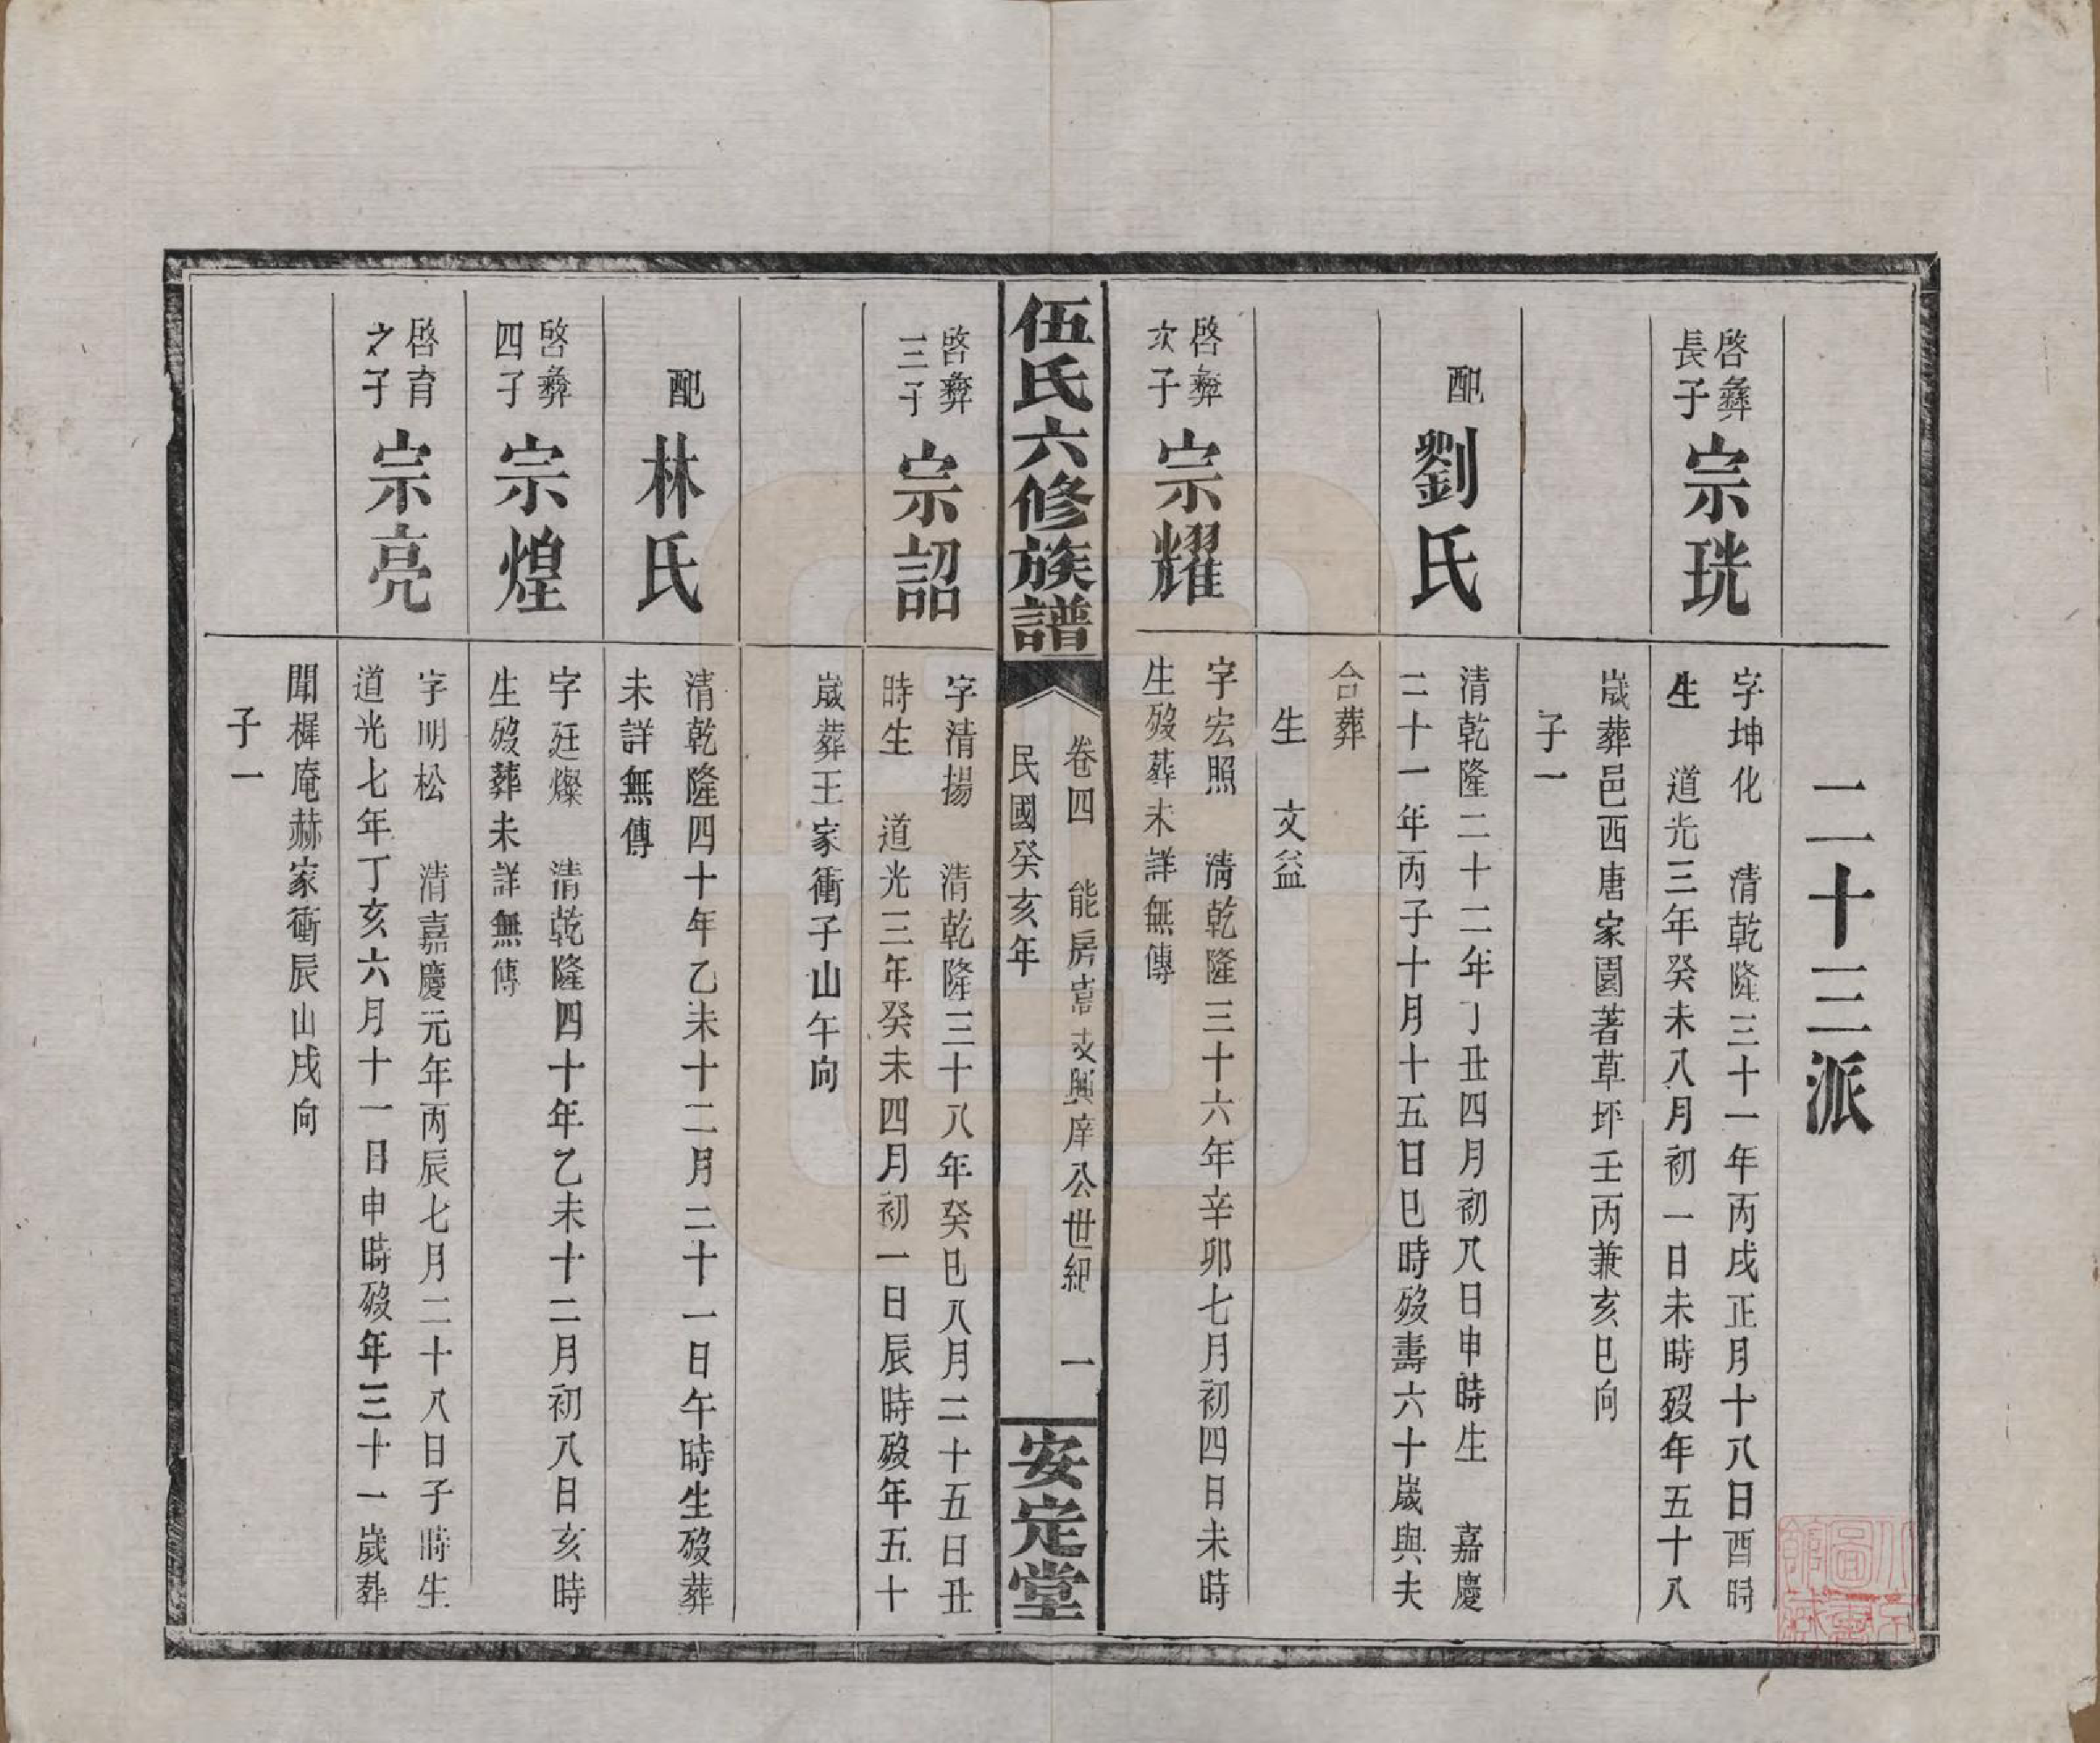 二十三派
啓彝
長子
宗珖
字坤化 清乾隆三十一年丙戌正月十八日酉時
生 道光三年癸未八月初一日未時歿年五十八
歲葬邑西唐家園著草坪壬丙兼亥巳向
子一
配
劉氏
清乾隆二十二年丁丑四月初八日申時生 嘉慶
二十一年丙子十月十五日巳時歿壽六十歲與夫
合葬
生 文益
啓彝
次子
宗耀
字宏照 清乾隆三十六年辛卯七月初四日未時
生歿葬未詳無傳
伍氏六修族譜
卷四 能房嵩支興庠公世紀 一
民國癸亥年
安定堂
啓彝
三子
宗詔
字清揚 清乾隆三十八年癸巳八月二十五日丑
時生 道光三年癸未四月初一日辰時歿年五十
歲葬王家衝子山午向
配
林氏
清乾隆四十年乙未十二月二十一日午時生歿葬
未詳無傳
啓彝
四子
宗煌
字廷燦 清乾隆四十年乙未十二月初八日亥時
生歿葬未詳無傳
啓育
之子
宗亮
字明松 清嘉慶元年丙辰七月二十八日子時生
道光七年丁亥六月十一日申時歿年三十一歲葬
聞樨庵赫家衝辰山戌向
子一